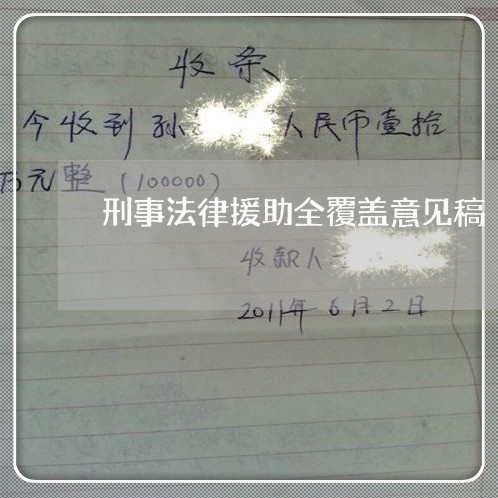 收条
今收到孙人民币壹拾
万元整(100000)
刑事法律援助全覆盖意见稿
收款人
2011年6月2日